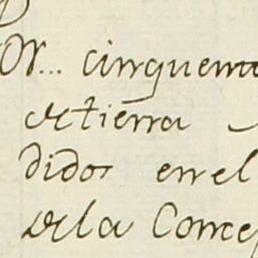 Or... cinquenta
de tierra
didos en el
de la Conce